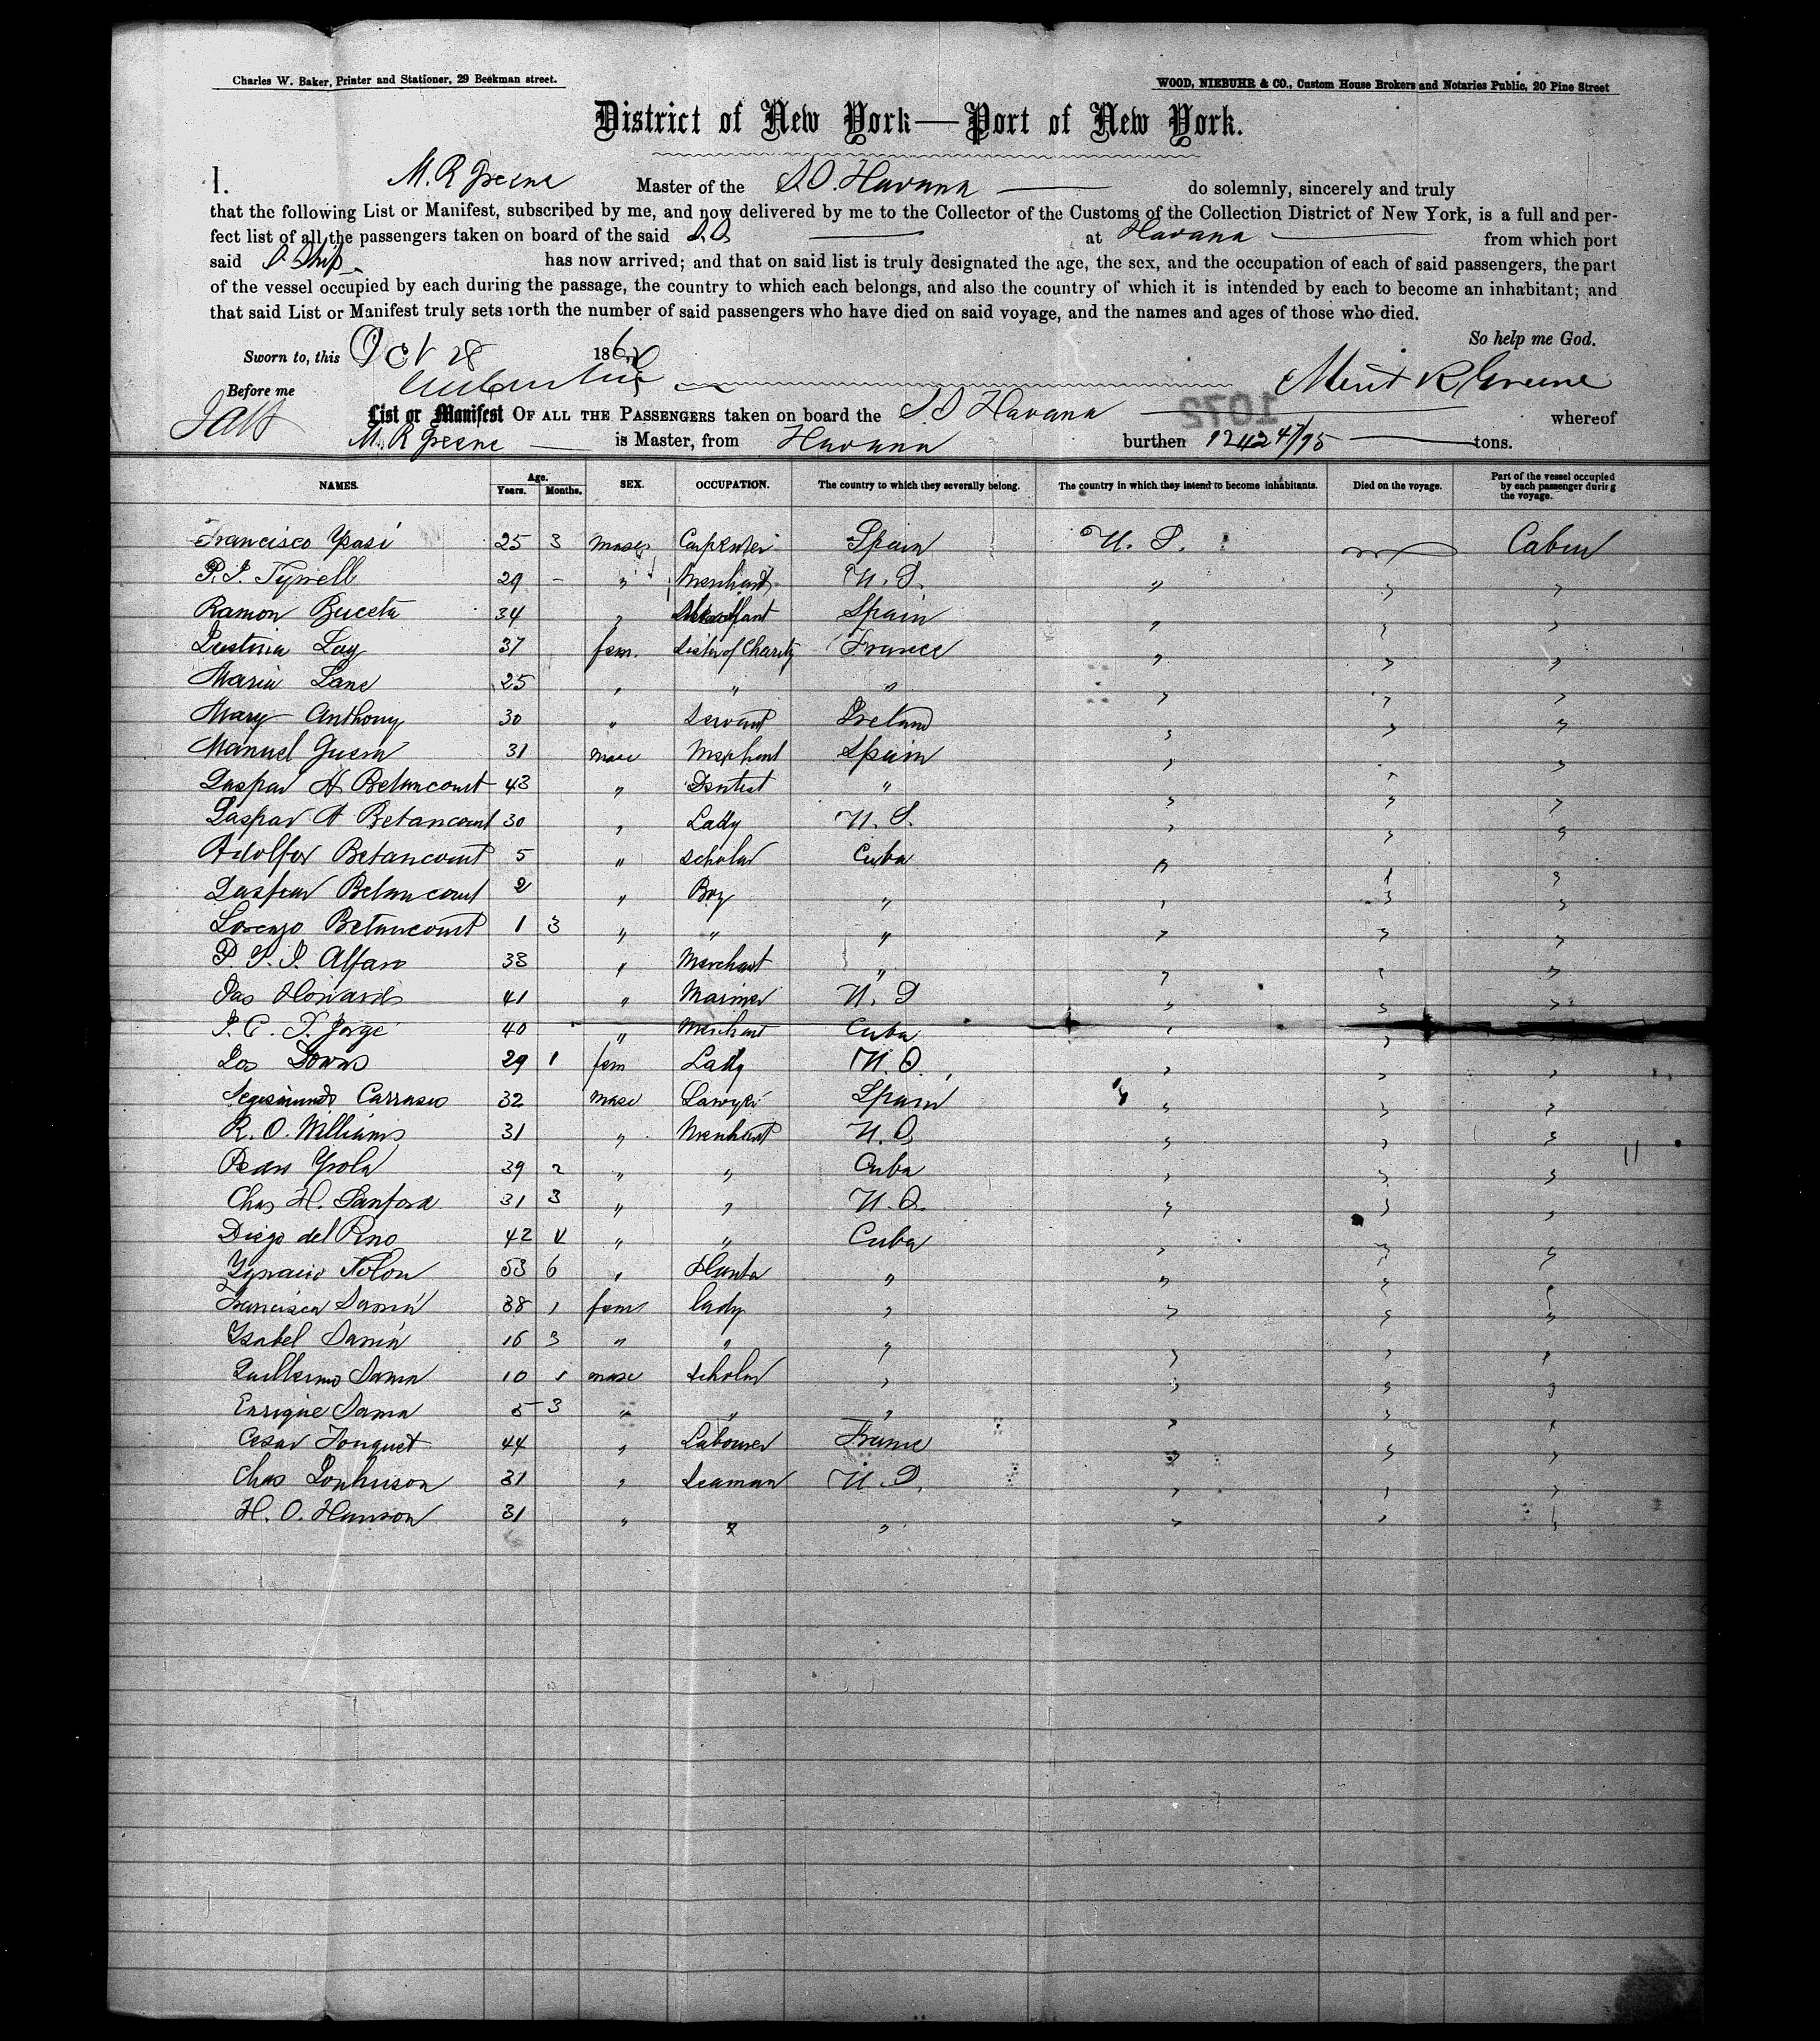 Charles W. Baker, Printer and Stationer, 29 Beekman street.
WOOD, NIEBUHR & CO., Custom House Brokers and Notaries Public, 20 Pine Street
District of New York—Port of New York.
I. M. R Greene Master of the S.S. Havana do solemnly, sincerely and truly
that the following List or Manifest, subscribed by me, and now delivered by me to the Collector of the Customs of the Collection District of New York, is a full and per-
fect list of all the passengers taken on board of the said S.S at Havana from which port
said S Ship has now arrived; and that on said list is truly designated the age, the sex, and the occupation of each of said passengers, the part
of the vessel occupied by each during the passage, the country to which each belongs, and also the country of which it is intended by each to become an inhabitant; and
that said List or Manifest truly sets forth the number of said passengers who have died on said voyage, and the names and ages of those who died.
So help me God.
Sworn to, this Oct 28 186
Before me Merit R Greene
List or Manifest OF ALL THE PASSENGERS taken on board the S S Havana whereof
M. R Greene is Master, from Havana burthen 1242 47/95 tons.
1072
NAMES. Age. Years. Months. SEX. OCCUPATION. The country to which they severally belong. The country in which they intend to become inhabitants. Died on the voyage. Part of the vessel occupied by each passenger during the voyage.
Francisco 25 3 masc Carpenter Spain U. S. Cabin
P. J. Tyrrell 29 - " Merchant U. S. " " "
Ramon Buceta 34 " Merchant Spain " " "
Justina Lay 37 fem. Sister of Charity France " " "
Maria Lane 25 " " " " " "
Mary Anthony 30 " Servant Ireland " " "
Manuel Guerra 31 masc Merchant Spain " " "
Gaspar A Betancourt 43 " Dentist " " " "
Gaspar A Betancourt 30 " Lady U. S. " " "
Adolfo Betancourt 5 " Scholar Cuba " " "
Gaspar Betancourt 2 " Boy " " " "
Lorenzo Betancourt 1 3 " " " " " "
P. S. J. Alfaro 33 " Merchant " " " "
Jas Howards 41 " Mariner U. S " " "
J. C. T. Jorge 40 " Merchant Cuba " " "
Downs 29 1 fem Lady U. S. " " "
Segismundo Carrasco 32 masc Lawyer Spain " " "
R. O. Williams 31 " Merchant U. S " " "
Pedro Yrola 39 2 " " Cuba " " "
Chas H. Sanford 31 3 " " U. S. " " "
Diego del Pino 42 " " Cuba " " "
Ygnacio Tolon 53 6 " " " " "
Francisca Sama 38 1 fem lady " " " "
Ysabel Sama 16 3 " " " " " "
Guillermo Sama 10 1 masc Scholar " " " "
Enrique Sama 5 3 " " " " " "
Cesar Fouquet 44 " Labourer France " " "
Chas 31 " Seaman U. S. " " "
H. O. Hanson 31 " " " " " "